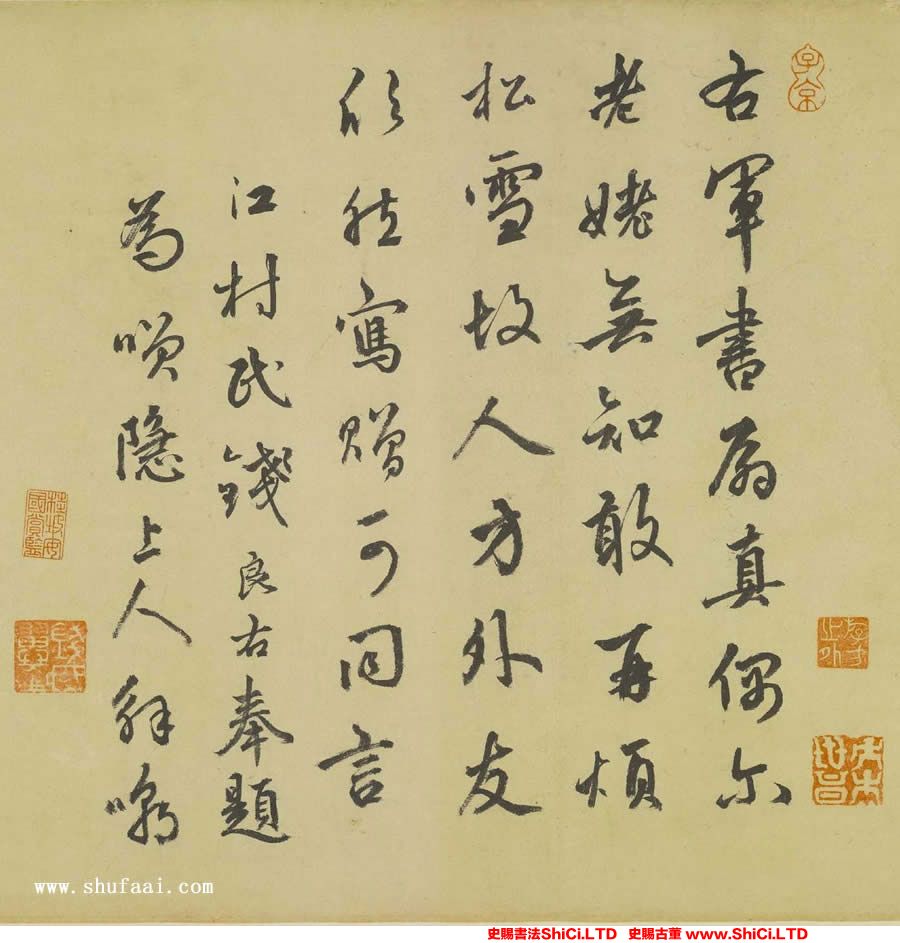 子京
右軍書扇真偶尔
老姥無知敢再煩
松雪故人方外友
欣然寫贈可同言
江村民錢良右奉題
為隱上人解嘲
桂坡安國賞鑒
www.shufaai.com
史賜書法ShiCi.LTD 史賜古董 www.ShiCi.LTD